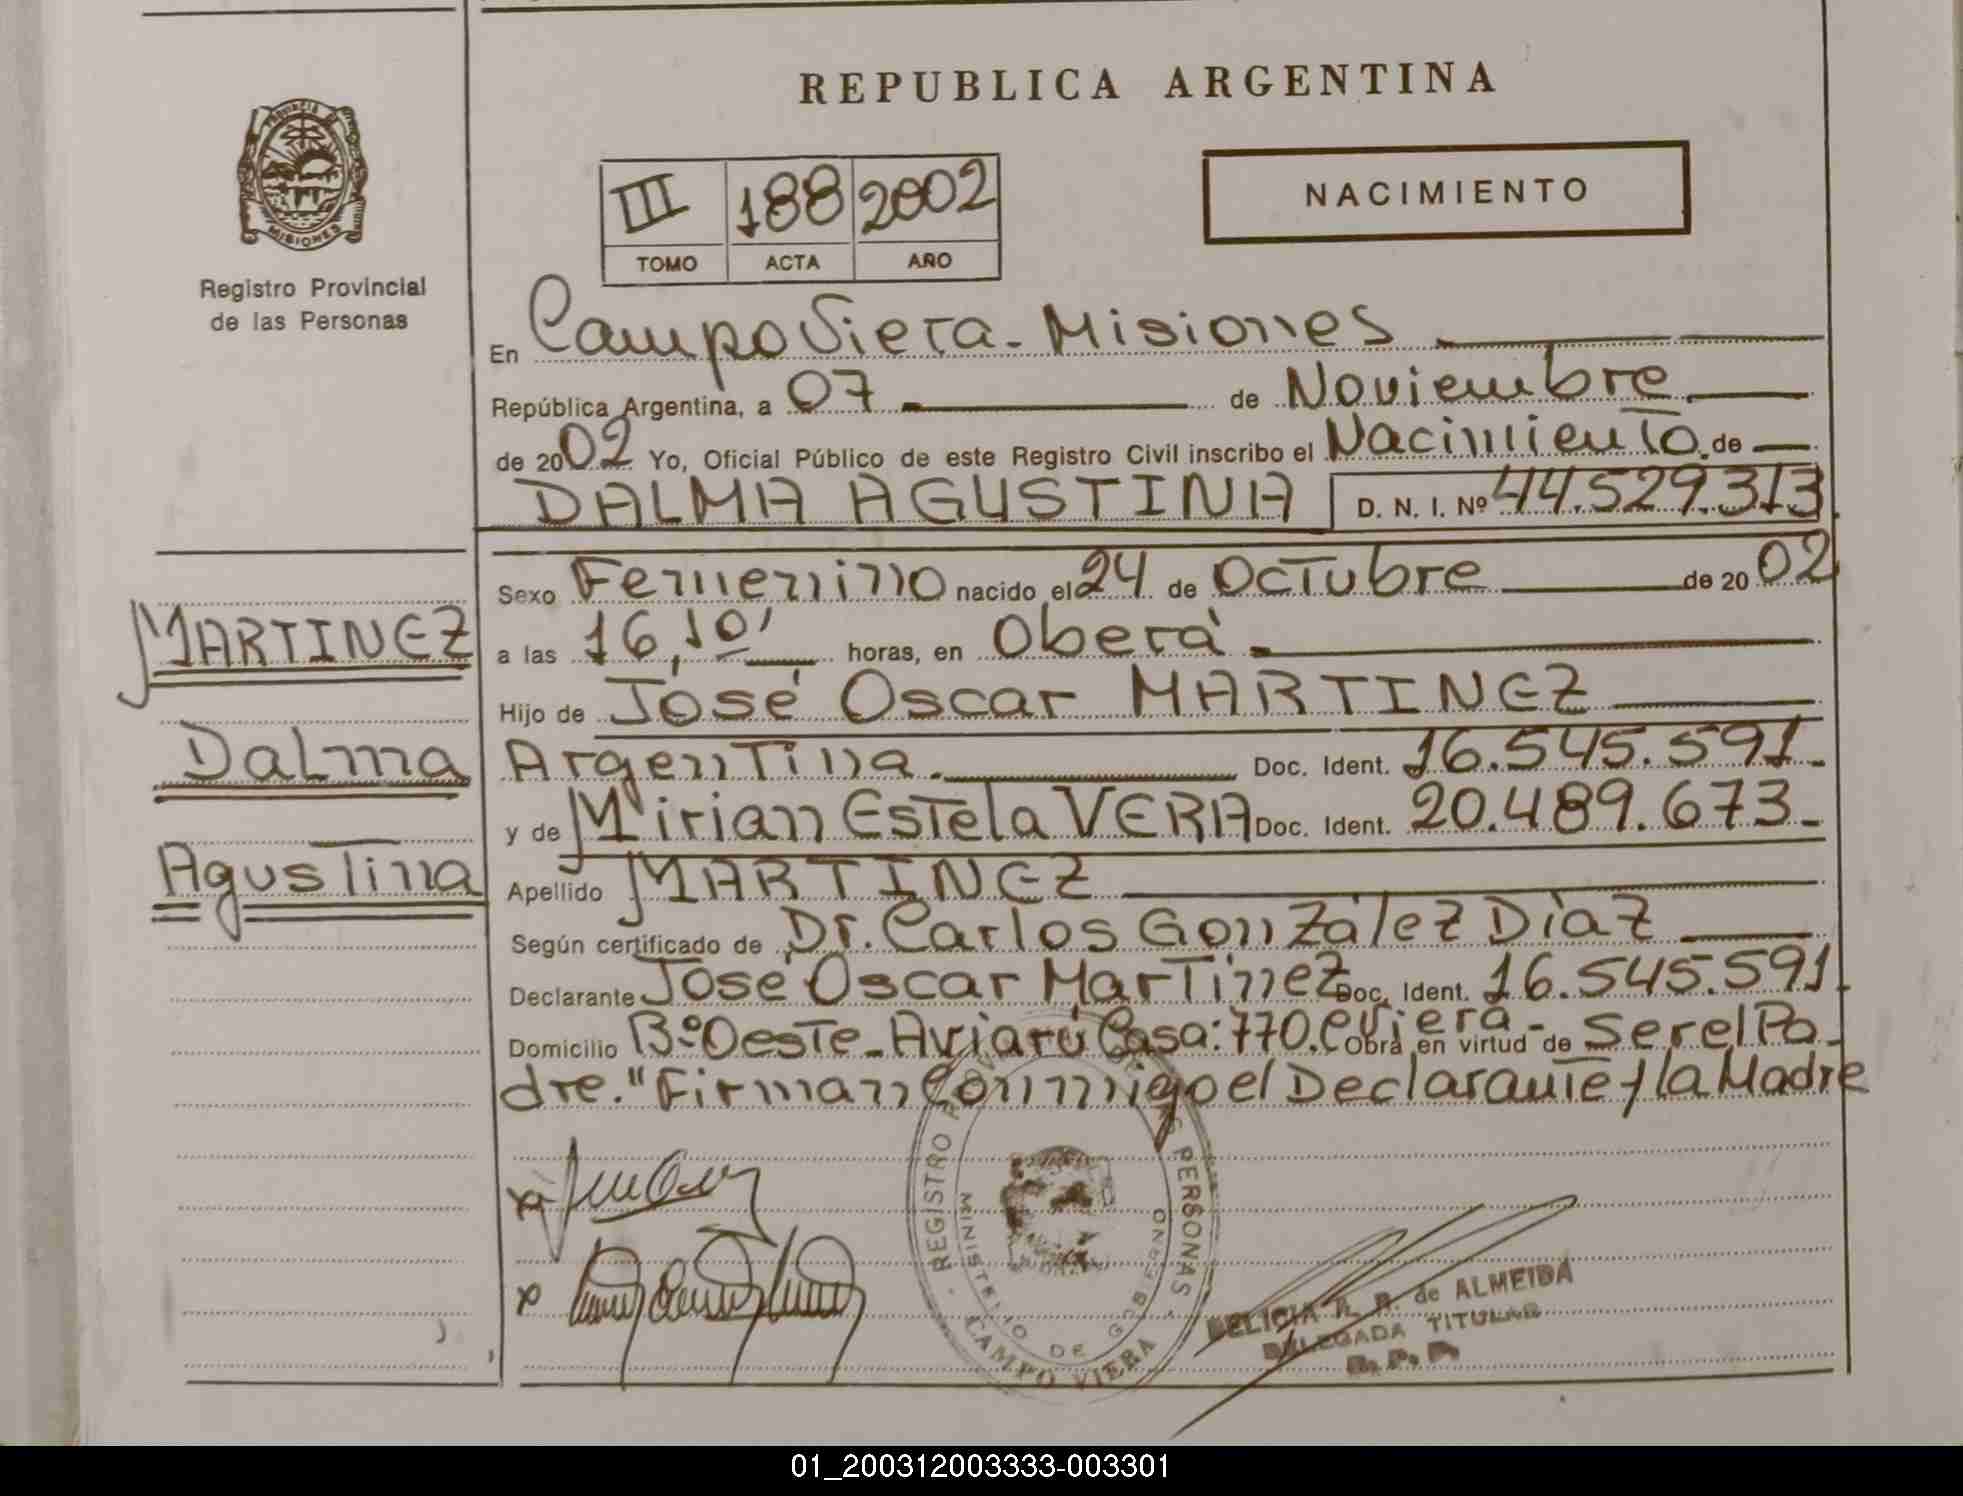 REPUBLICA ARGENTINA
NACIMIENTO
III 188 2002
TOMO ACTA AÑO
PROVINCIA DE MISIONES
Registro Provincial
de las Personas
En Campo Viera - Misiones
República Argentina, a 07 de Noviembre
de 2002 Yo, Oficial Público de este Registro Civil inscribo el Nacimiento de
DALMA AGUSTINA D. N. I. Nº 44.529.313
Sexo Femenino nacido el 24 de Octubre de 2002
MARTINEZ
a las 16,10' horas, en Oberá
Hijo de José Oscar MARTINEZ
Dalma
Argentina. Doc. Ident. 16.545.591
y de Mirian Estela VERA Doc. Ident. 20.489.673
Agustina
Apellido MARTINEZ
Según certificado de Dr. Carlos González Díaz
Declarante José Oscar Martinez Doc. Ident. 16.545.591
Domicilio Bº Oeste - Aviarú Casa: 770. C Viera - Obra en virtud de ser el Pa-
dre." Firman Conmigo el Declarante y la Madre
REGISTRO PERSONAS
MINISTERIO DE GOBIERNO
CAMPO VIERA
de ALMEIDA
DELEGADA TITULAR
R. P. P.
01_200312003333-003301